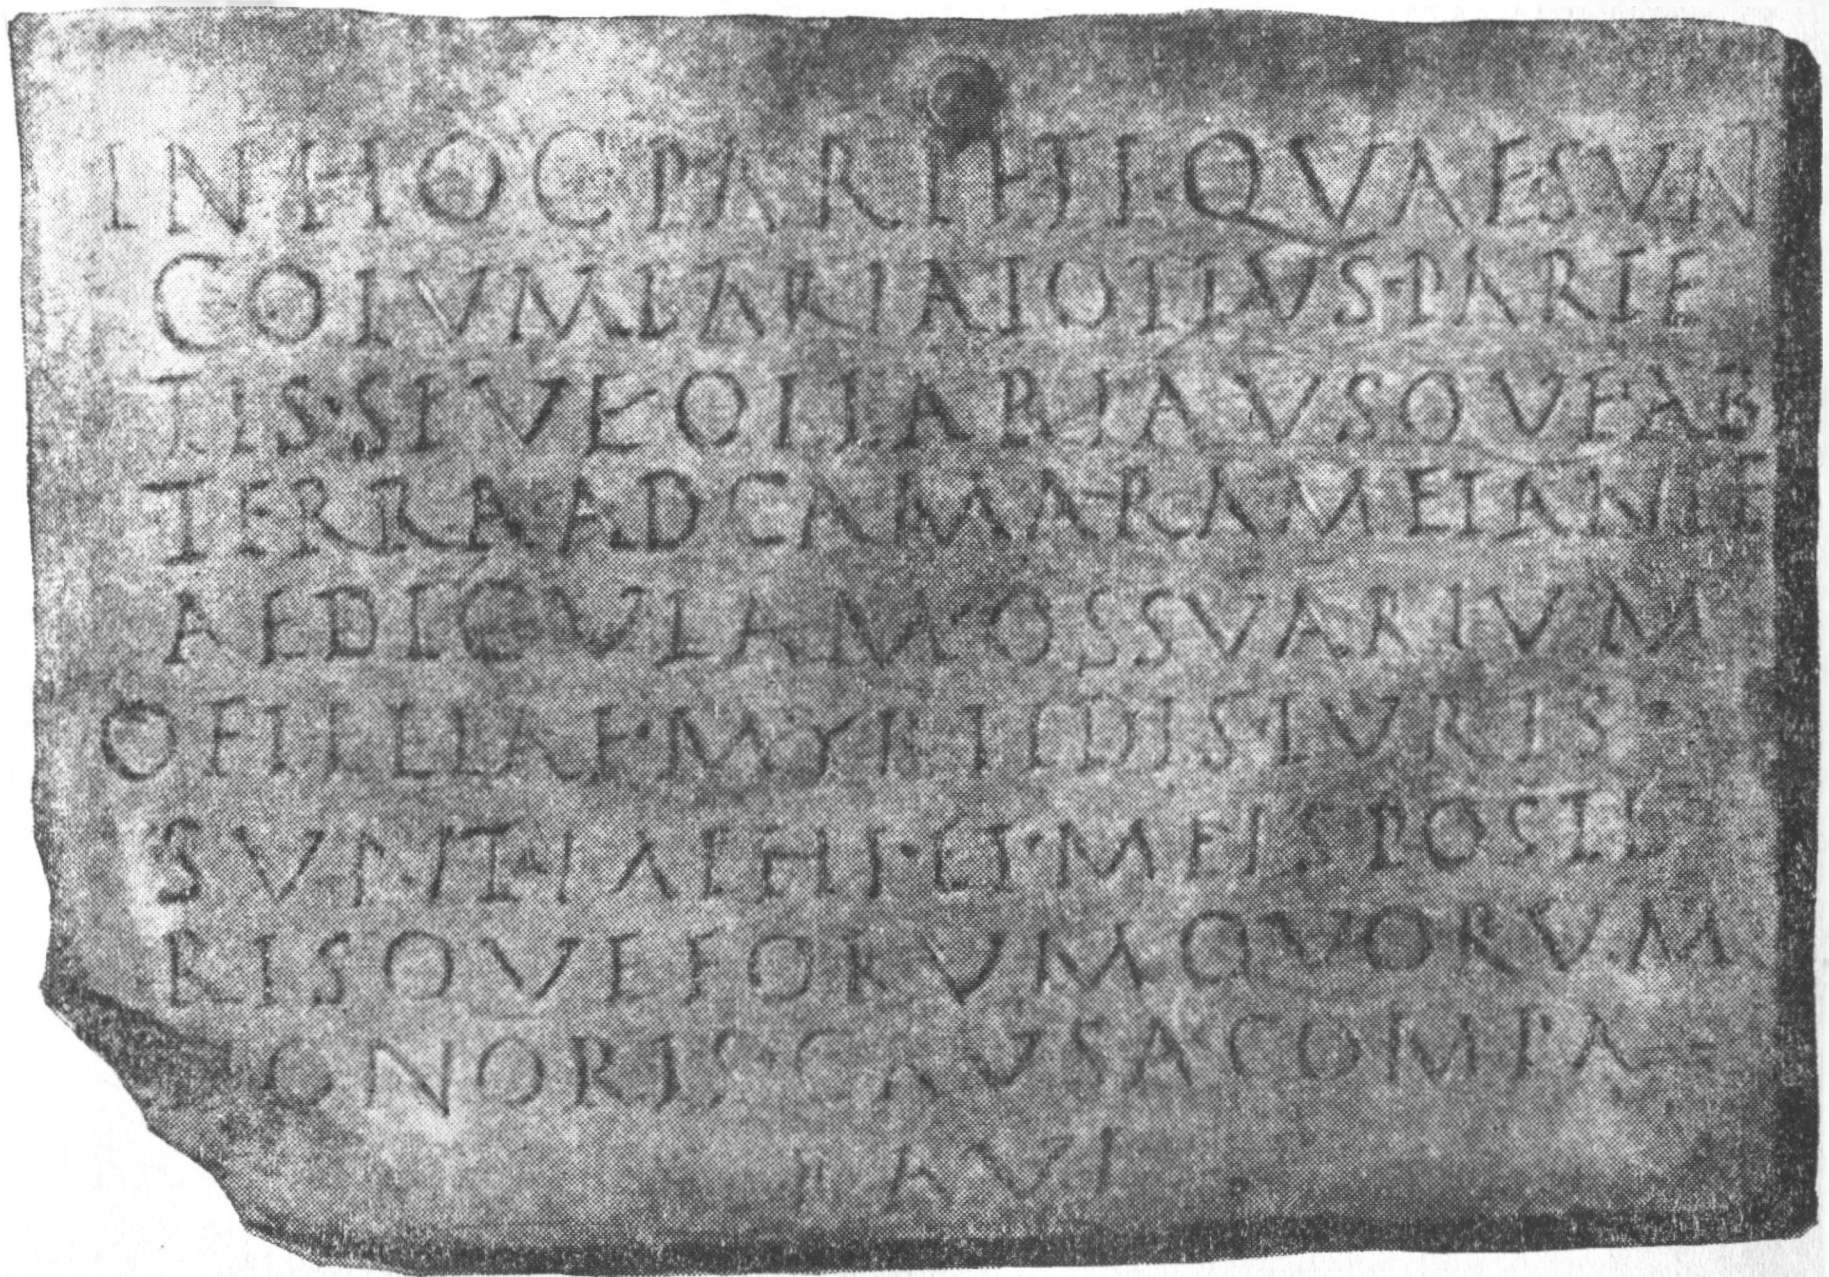 IN HOC PARIETI QVAE SVN
COLVMBARIA TOTIVS·PARIE
TIS·SIVE OLLARIA VSQVE AB
TERRA AD CAMARAM ET ANTE
AEDICVLAM·OSSVARIVM
OFILLIAE·MYRTIDIS IVRIS
SVNT·IALEHI·ET·MEIS POSTE
RISQVE EORVM QVORVM
HONORIS·CAVSA COMPA
RAVI